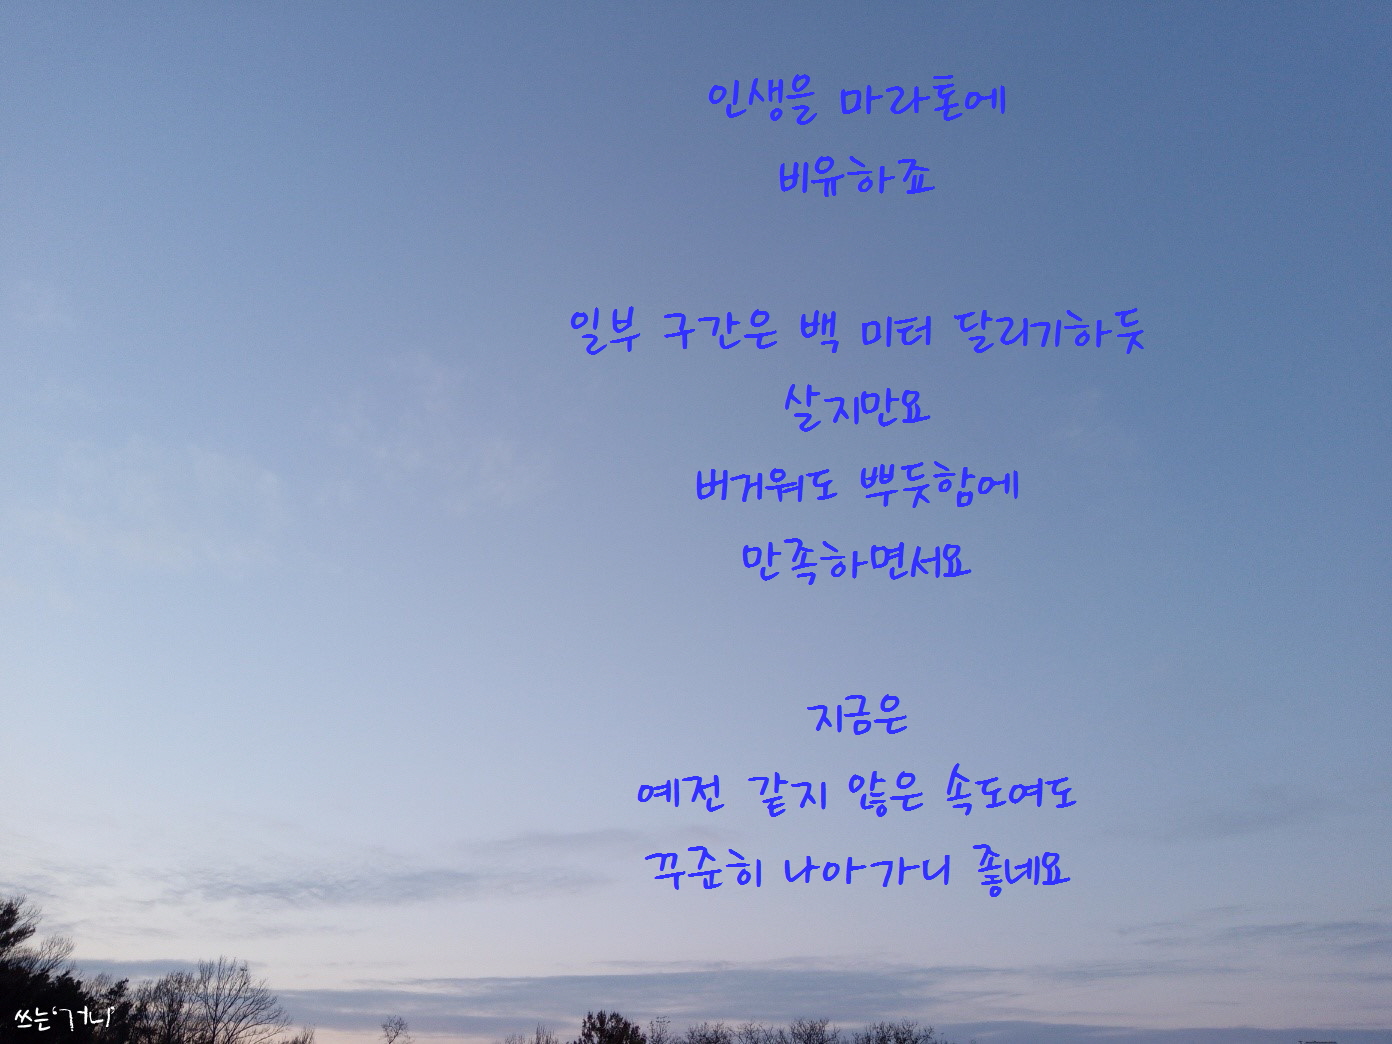 인생을 마라톤에
비유하죠
일부 구간은 백 미터 달리기하듯
살지만요
버거워도 뿌듯함에
만족하면서요
지금은
예전 같지 않은 속도여도
꾸준히 나아가니 좋네요
쓰는'거니'